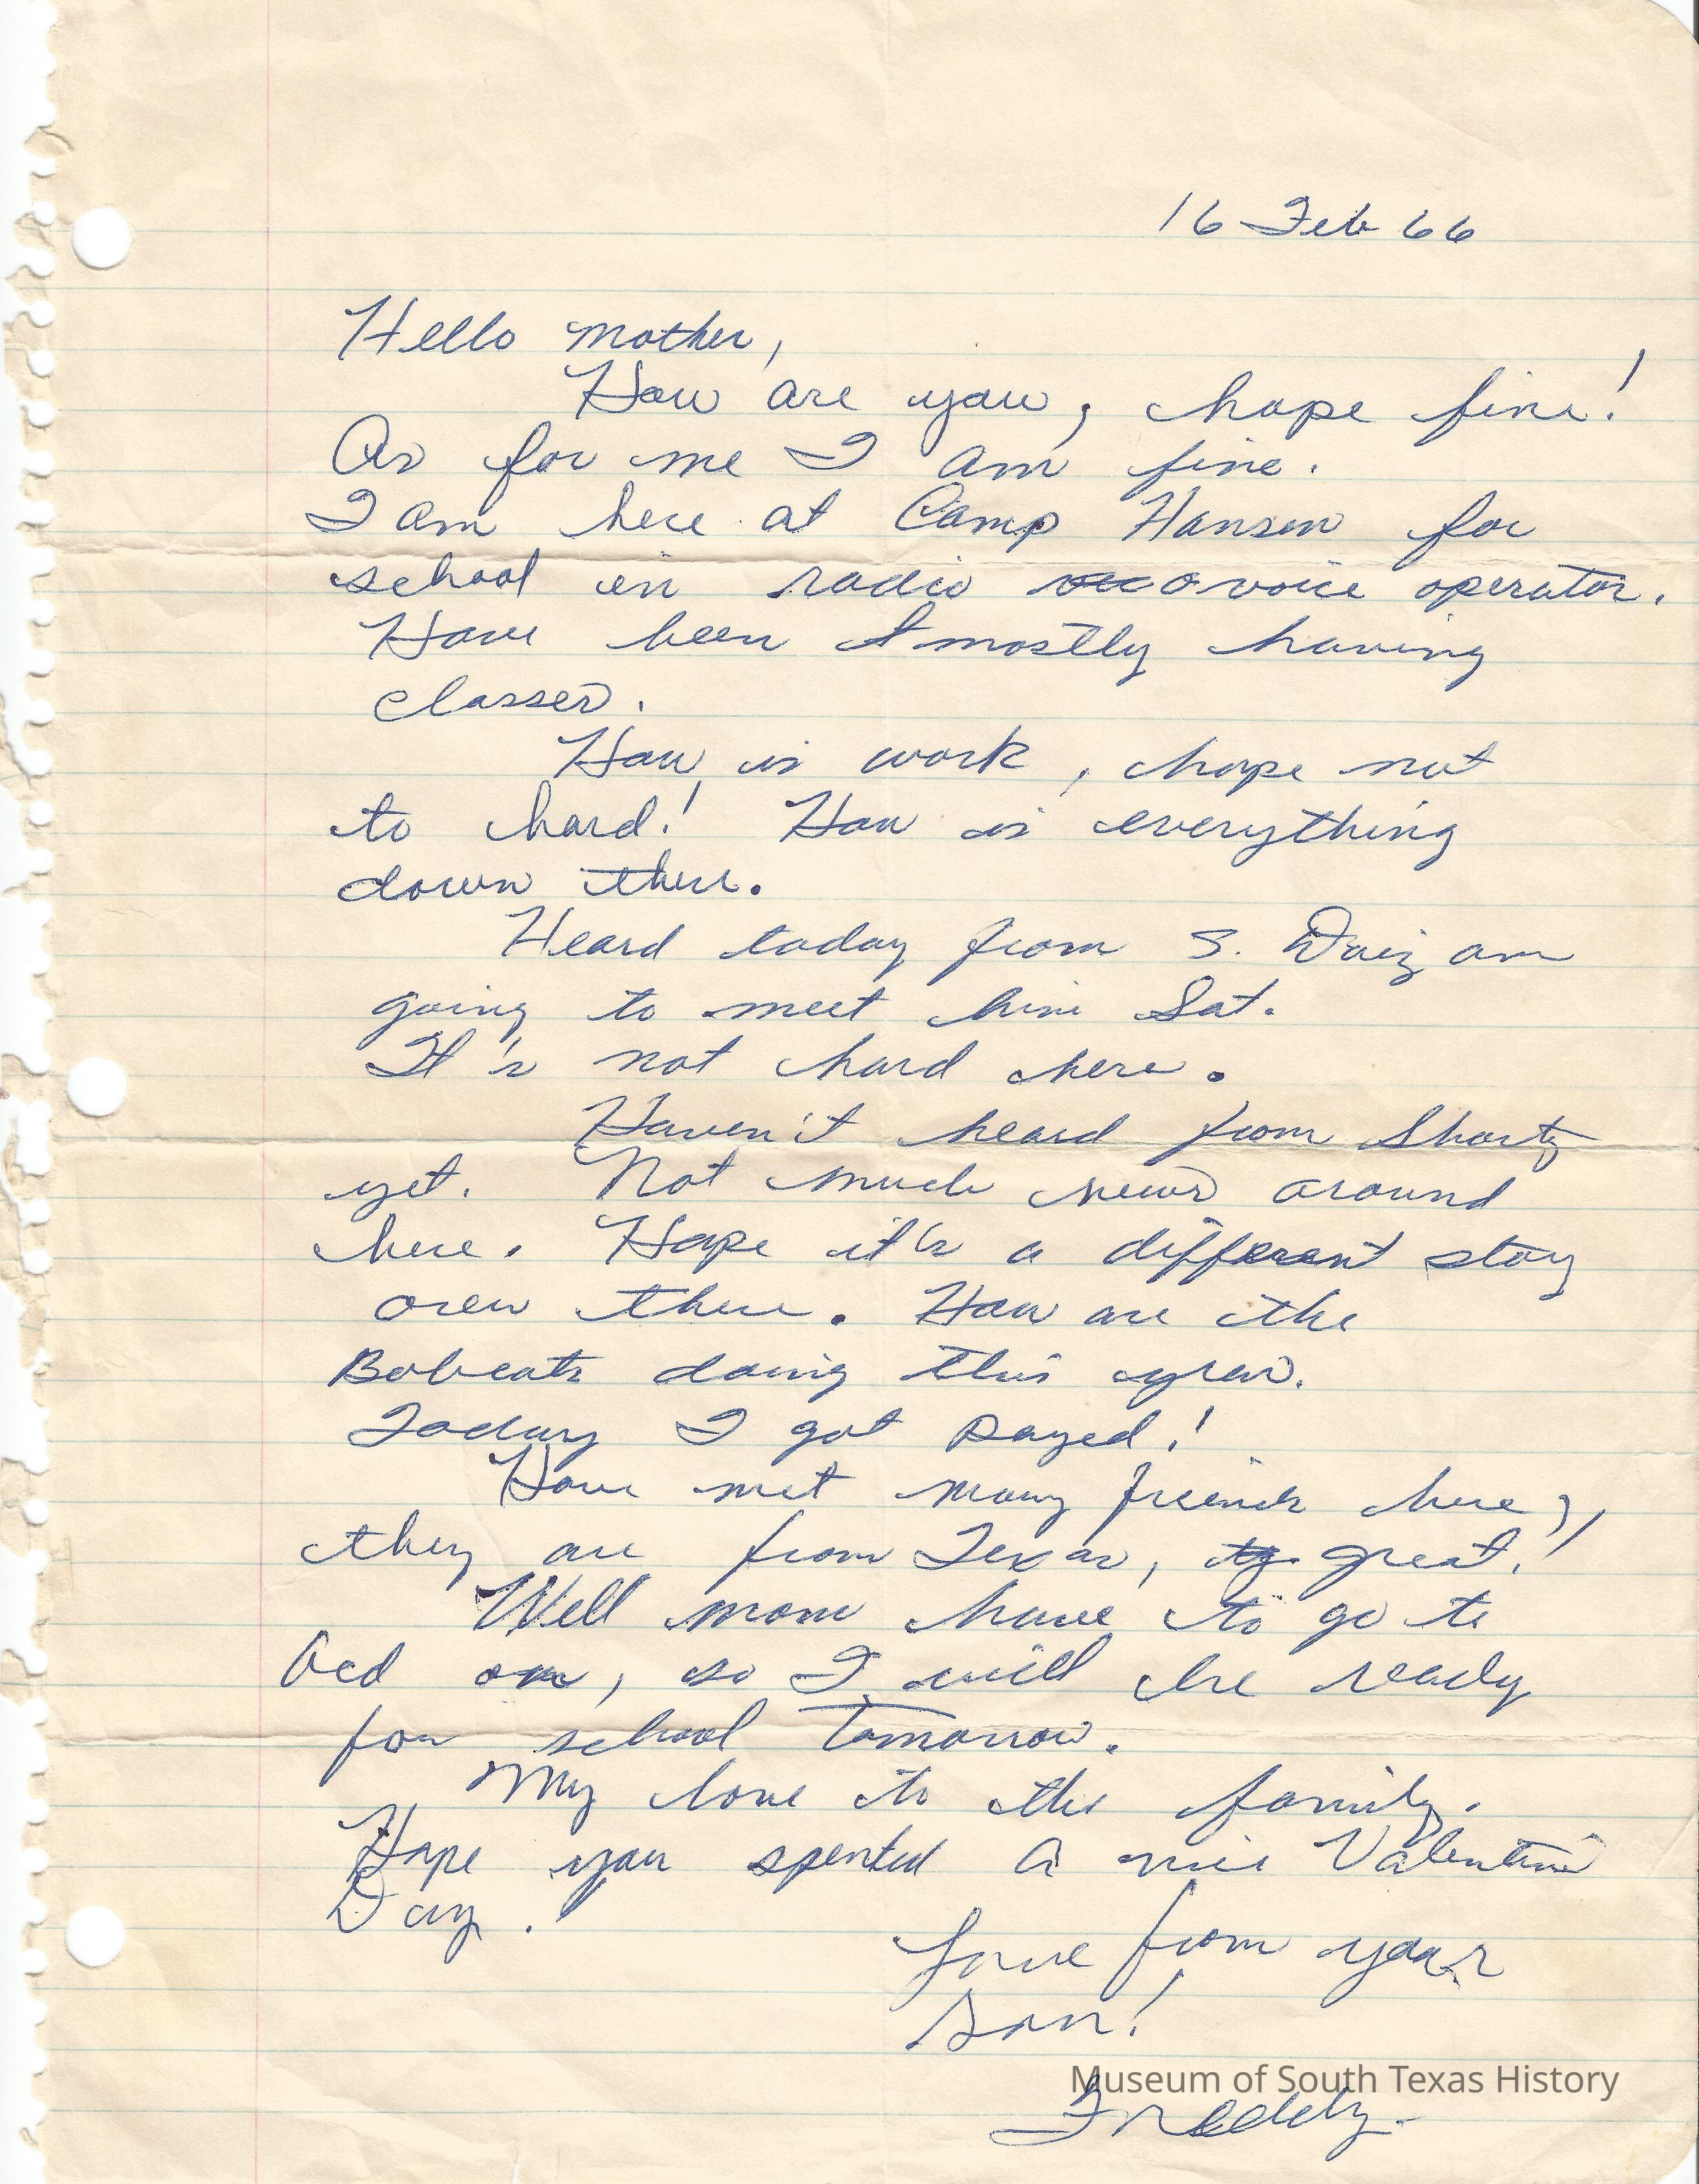 16 Feb 66
Hello mother,
How are you, hope fine!
As for me I am fine.
I am here at Camp Hansen for
school in radio voice operator.
Have been mostly having
classes.
How is work, hope not
to hard! How is everything
down there.
Heard today from S. am
going to meet him Sat.
It's not hard here.
Haven't heard from Shorty
yet. Not much news around
here. Hope it's a different stoy
over there. How are the
Bobcats doing this year.
Today I got payed!
Have met many friends here,
they are from Texas, great!
Well mom have to go to
bed so I will be ready
for school tomorrow.
My love to the family.
Hope you spented a nice Valentine
Day.
Love from your
son!
Museum of South Texas History
Freddy.